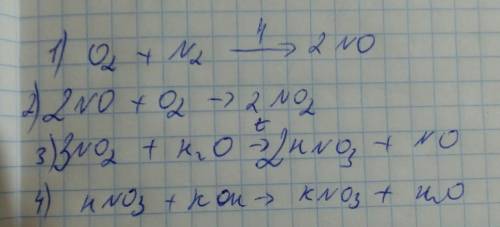 1) O₂ + N₂ ⟶ 2 NO
2) 2NO + O₂ → 2 NO₂
3) 3NO₂ + H₂O →ᵗ 2HNO₃ + NO
4) HNO₃ + KOH → KNO₃ + H₂O